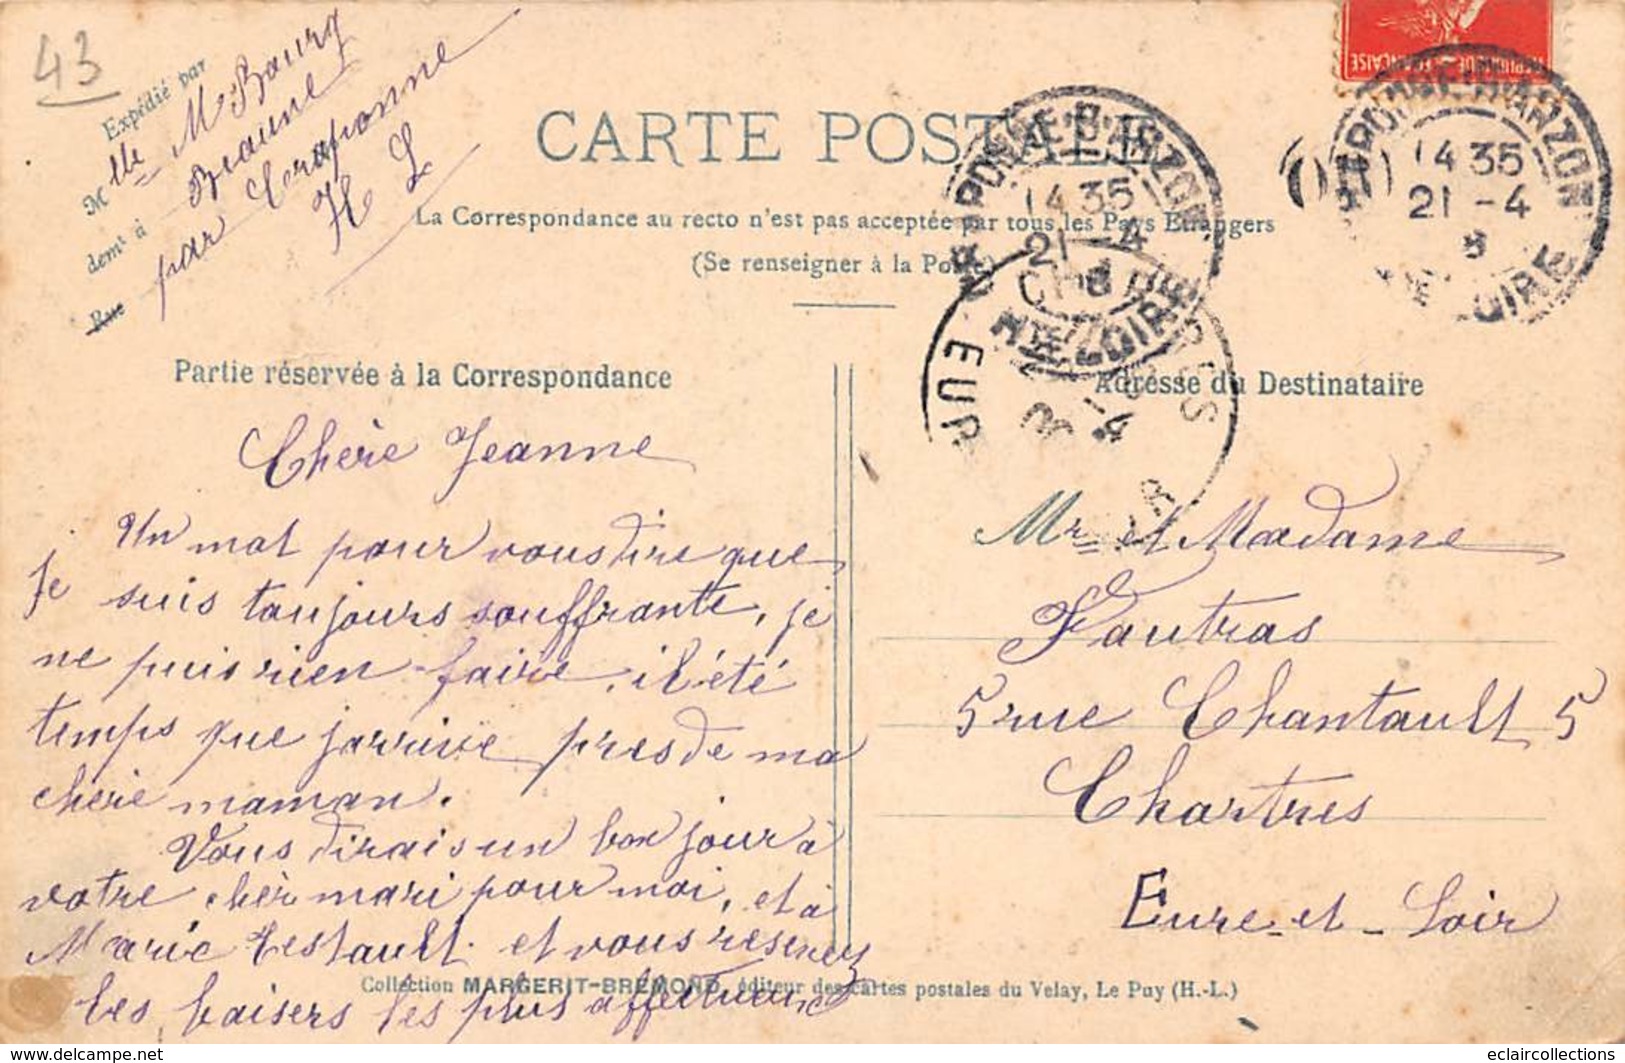 43
Expédié par
Mlle M Bourg
demt à Beaune
Rue par Craponne
H L
CARTE POSTALE
La Correspondance au recto n'est pas acceptée par tous les Pays Etrangers
(Se renseigner à la Poste)
CRAPONNE-D'ARZON
14 35
21 -4
8
HTE LOIRE
CRAPONNE-D'ARZON
14 35
21 -4
8
HTE LOIRE
CHARTRES
EURE
Partie réservée à la Correspondance
Adresse du Destinataire
Chère Jeanne
Un mot pour vous dire que
je suis toujours souffrante, je
ne puis rien faire, il été
temps que jarrive pres de ma
chère maman.
Vous dirais un bonjour à
votre cher mari pour moi, et à
Marie Testault. et vous resevez
les baisers les plus affectueux
Mr et Madame
Fautras
5 rue Chantault 5
Chartres
Eure-et-Loir
Collection MARGERIT-BREMOND, éditeur des cartes postales du Velay, Le Puy (H.-L.)
www.delcampe.net
eclaircollections